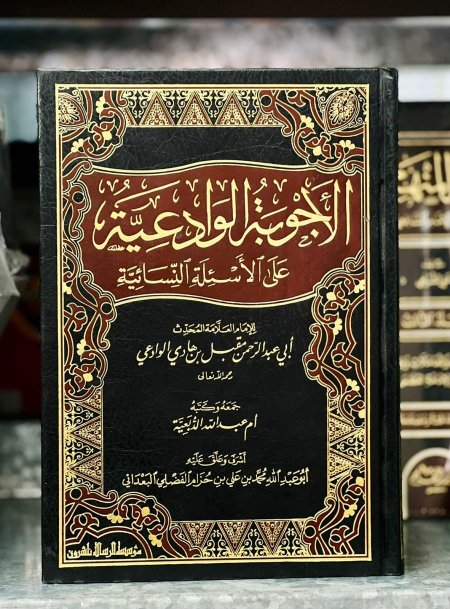 الأجوبة الوادعية
على الأسئلة النسائية
للإمام العلامة المحدث
أبي عبد الرحمن مقبل بن هادي الوادعي
رحمه الله تعالى
جمعه وكتبه
أم عبد الله الربعية
أشرف وعلق عليه
أبو عبد الله محمد بن علي بن حزام الفضلي البعداني
مؤسسة الرسالة ناشرون